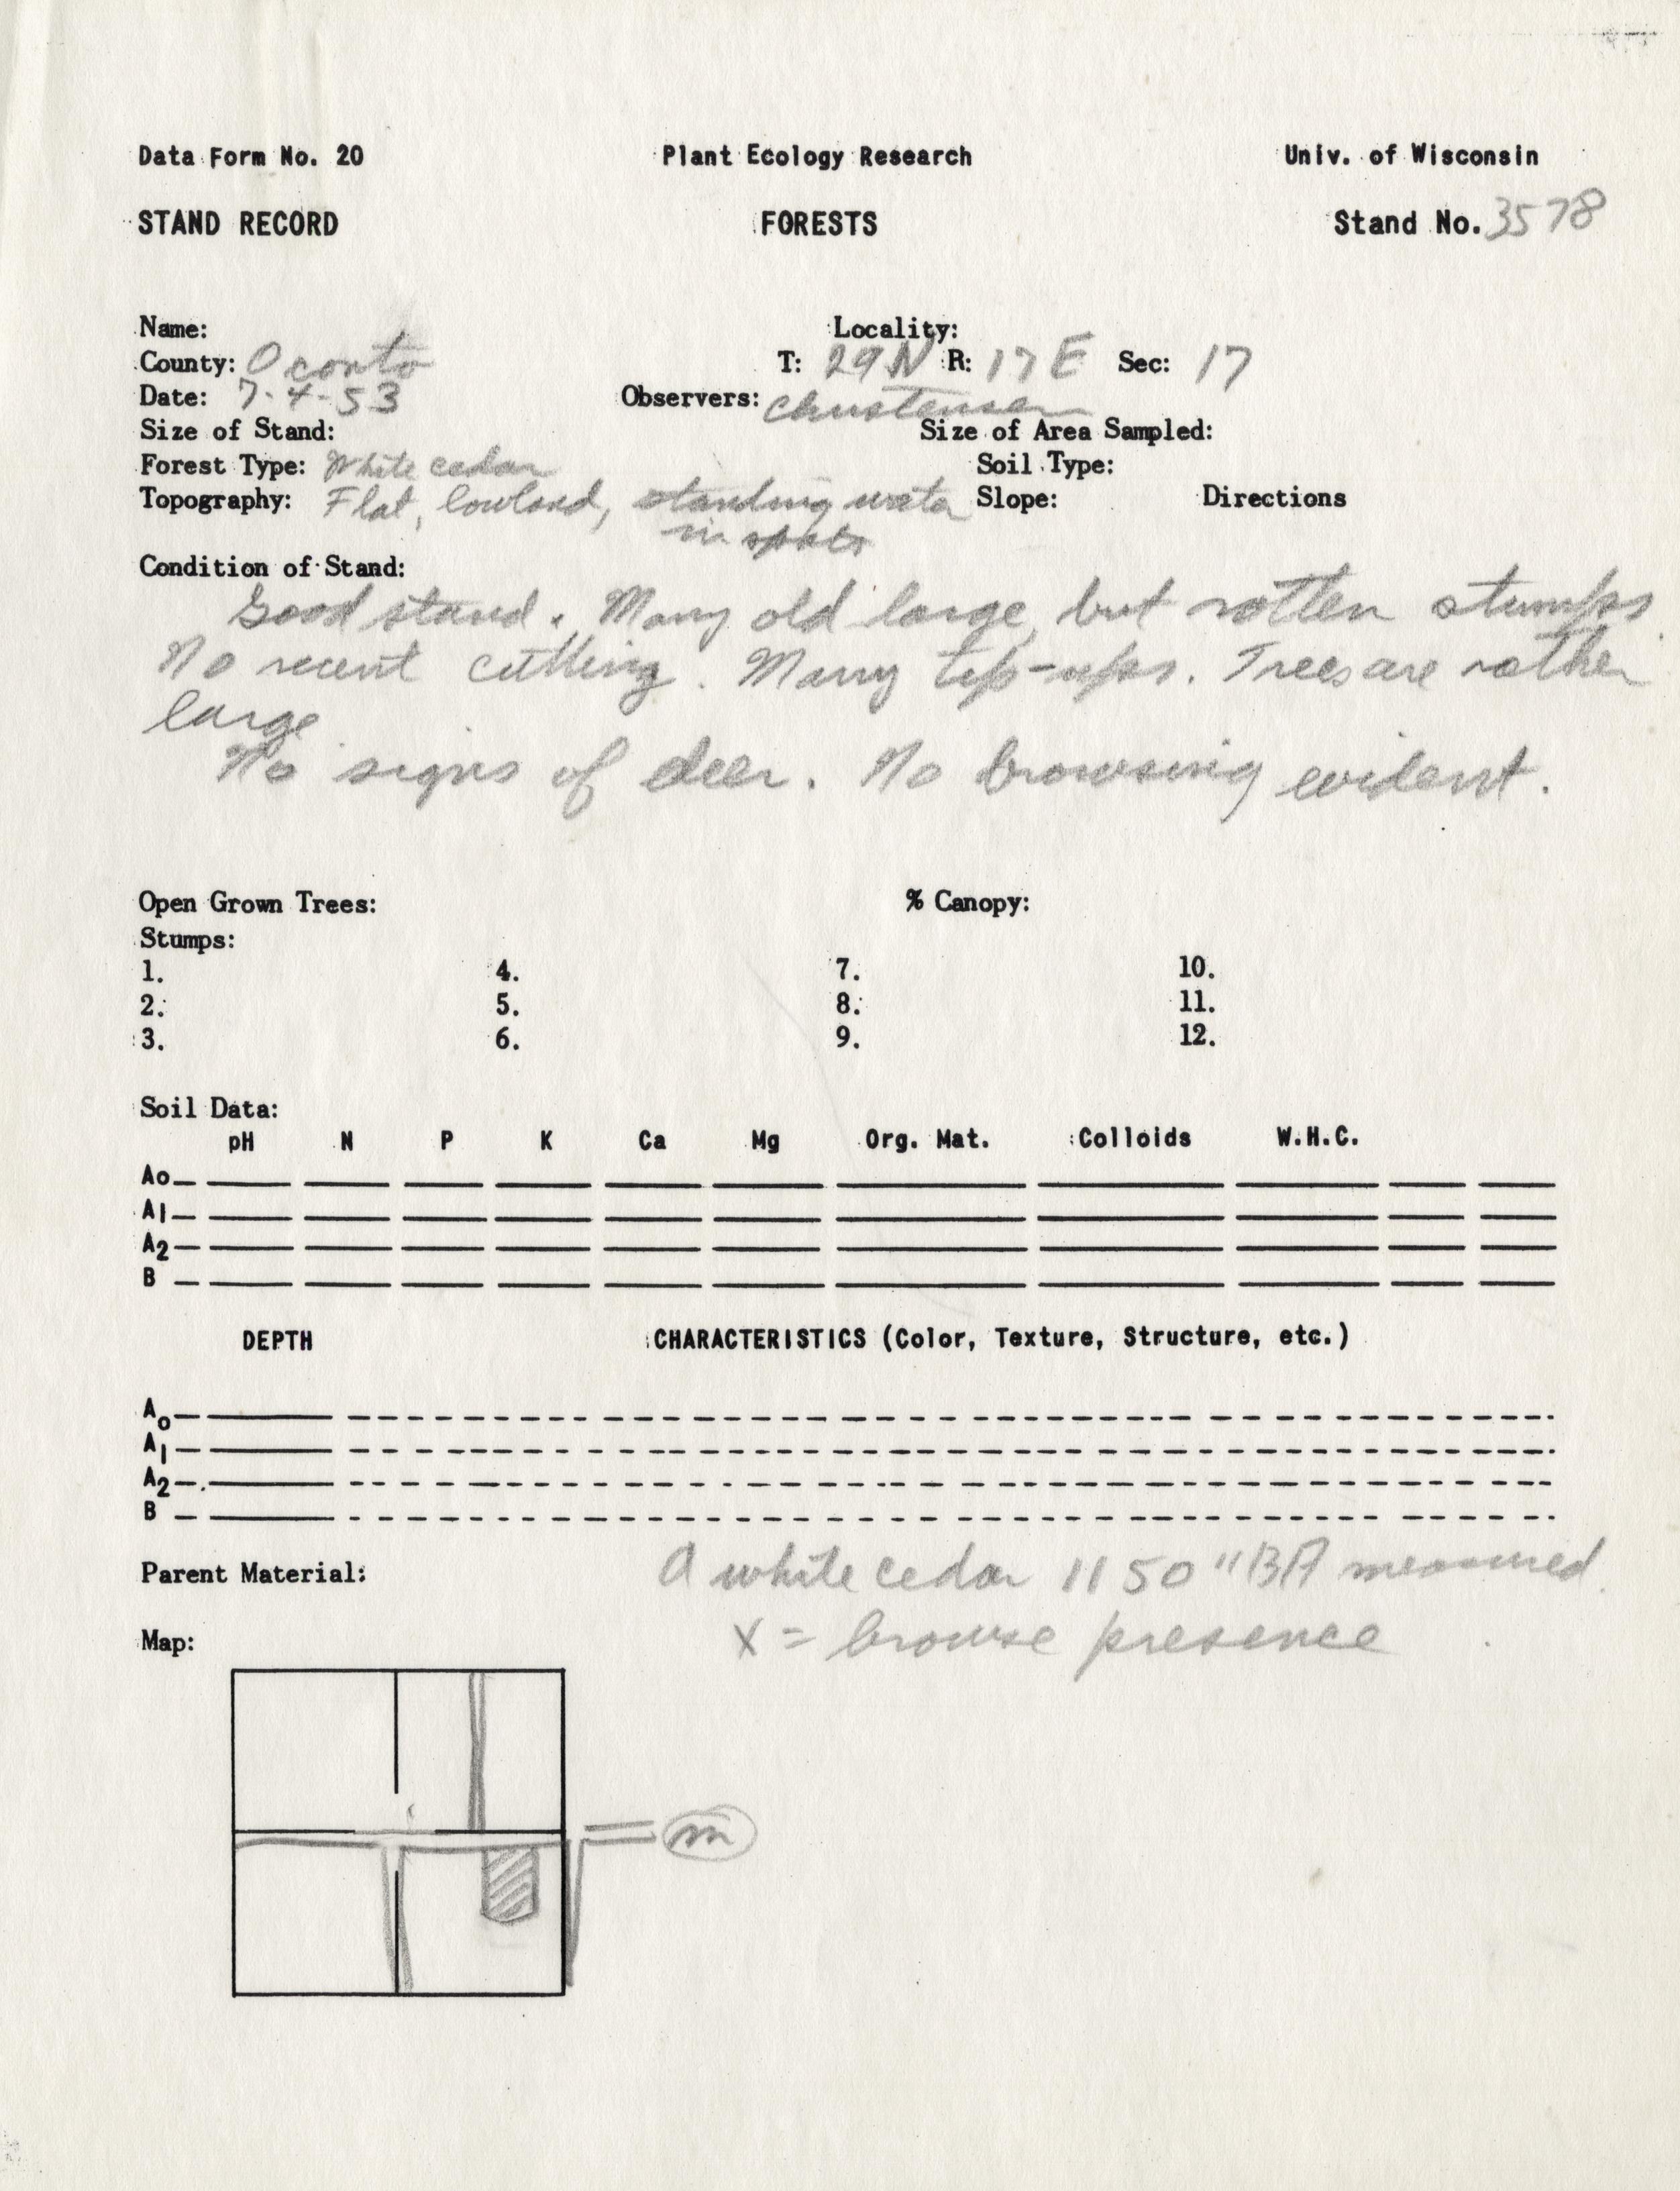 Data Form No. 20 Plant Ecology Research Univ. of Wisconsin
STAND RECORD FORESTS Stand No. 3578
Name: Locality:
County: Oconto T: 29N R: 17E Sec: 17
Date: 7-4-53 Observers: Christensen
Size of Stand: Size of Area Sampled:
Forest Type: White cedar Soil Type:
Topography: Flat, lowland, standing water Slope: Directions
in spots
Condition of Stand:
Good stand. Many old large, but rotten stumps
No recent cutting. Many tip-ups. Trees are rather
large
No signs of deer. No browsing evident.
Open Grown Trees: % Canopy:
Stumps:
1. 4. 7. 10.
2. 5. 8. 11.
3. 6. 9. 12.
Soil Data:
pH N P K Ca Mg Org. Mat. Colloids W.H.C.
Ao
A1
A2
B
DEPTH CHARACTERISTICS (Color, Texture, Structure, etc.)
Ao
A1
A2
B
Parent Material: A white cedar 1150 "BA measured.
Map: X = browse presence
m